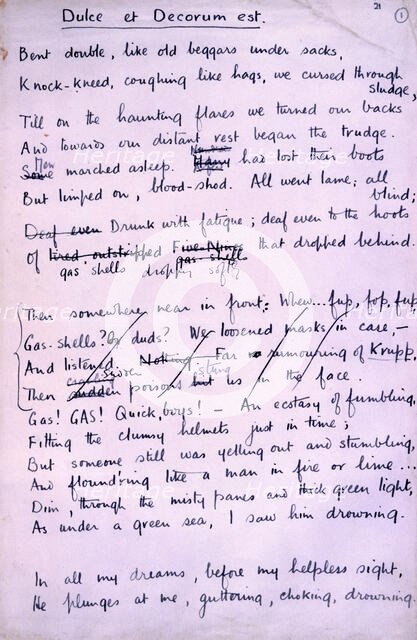 21
1
Dulce et Decorum est.
Bent double, like old beggars under sacks,
Knock-kneed, coughing like hags, we cursed through
sludge,
Till on the haunting flares we turned our backs
And towards our distant rest began the trudge.
Some Men marched asleep. Many had lost their boots
But limped on, blood-shod. All went lame; all
blind;
Deaf even Drunk with fatigue; deaf even to the hoots
Of tired, outstripped Five-Nines that dropped behind.
gas shells dropping softly gas shells
Then somewhere near in front: Whew... fup, fop, fup,
Gas-shells? Or duds? We loosened masks in case,—
And listened. Nothing. Far rumouring of Krupp,
Then sudden poisons hit us in the face.
stinging
Gas! GAS! Quick, boys! — An ecstasy of fumbling,
Fitting the clumsy helmets just in time;
But someone still was yelling out and stumbling,
And flound'ring like a man in fire or lime...
Dim, through the misty panes and thick green light,
As under a green sea, I saw him drowning.
In all my dreams, before my helpless sight,
He plunges at me, guttering, choking, drowning.
Heritage
Heritage
Heritage
Heritage